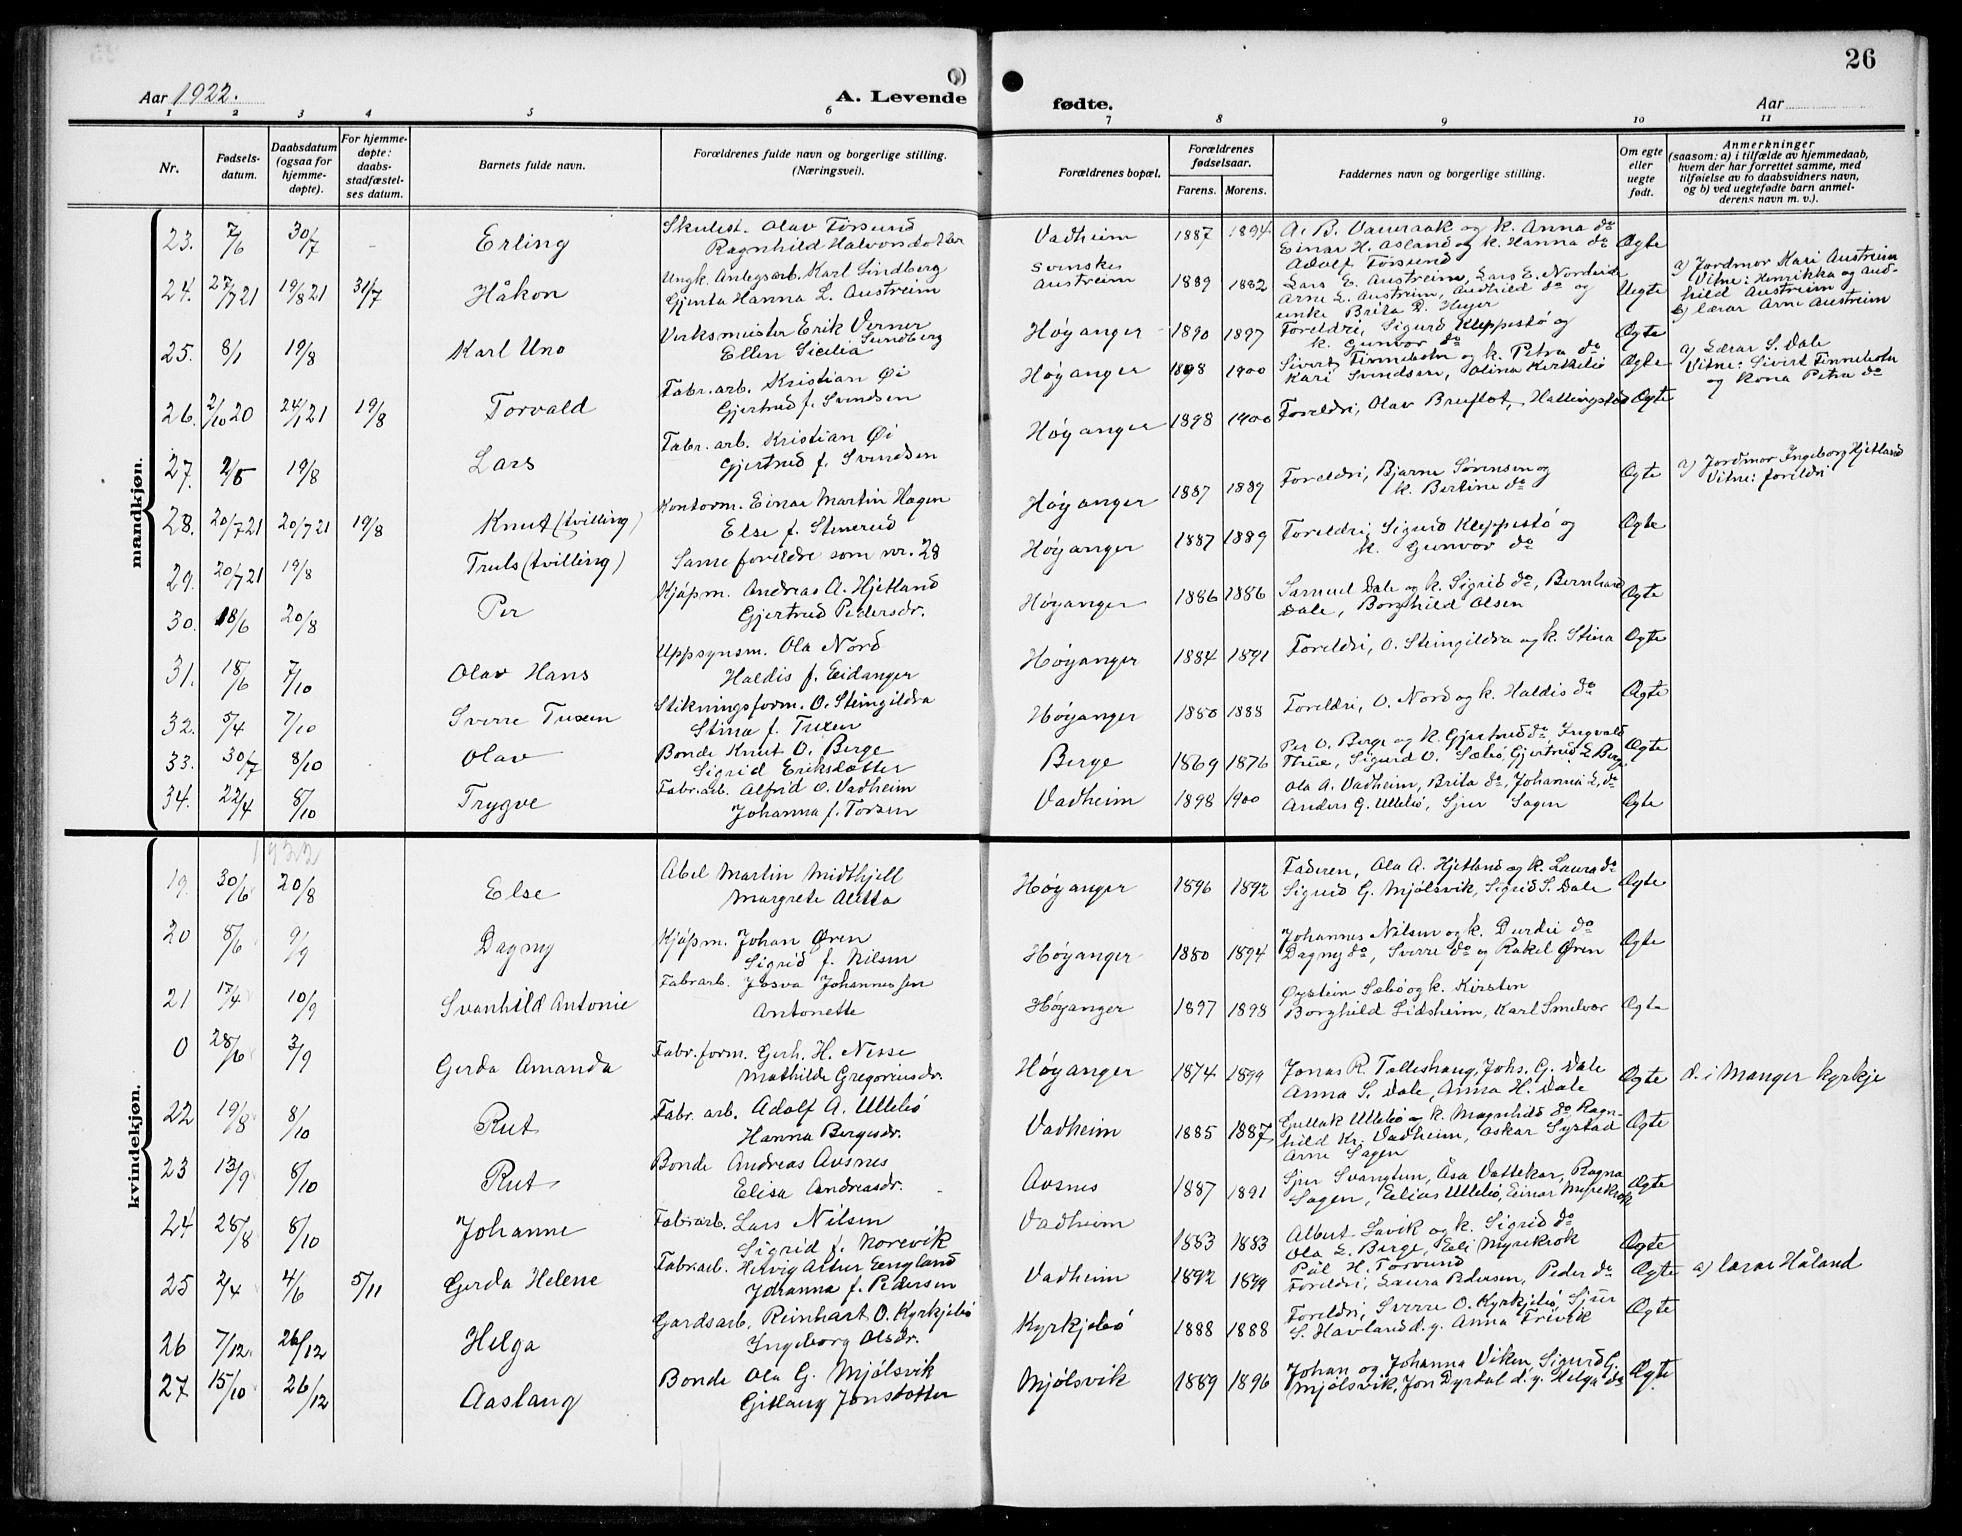 26
Aar 1922.
A. Levende fødte.
Aar
1 2 3 4 5 6 7 8 9 10 11
Nr.
Fødsels-
datum.
Daabsdatum
(ogsaa for
hjemme-
døpte).
For hjemme-
døpte:
daabs-
stadfæstel-
ses datum.
Barnets fulde navn.
Forældrenes fulde navn og borgerlige stilling.
(Næringsvei).
Forældrenes bopæl.
Forældrenes
fødselsaar.
Farens. Morens.
Faddernes navn og borgerlige stilling.
Om egte
eller
uegte
født.
Anmerkninger
(saasom: a) i tilfælde av hjemmedaab,
hvem der har forrettet samme, med
tilføielse av to daabsvidners navn,
og b) ved uegtefødte barn anmel-
derens navn m. v.).
mandkjøn.
23. 7/6 30/7 - Erling Skulest. Olav Torsund
Ragnhild Halvorsdotter
Vadheim 1887 1894 A. B. Vaueraak og k. Anna do
Einar H. Asland og k. Hanna do
Adolf Torsund
Ægte
24. 27/7 21 19/8 21 31/7 Håkon Ungk. Anlegsarb. Karl Lindberg
Gjenta Hanna L. Austreim
Svenske
Austreim 1889 1882 Lars E. Austreim, Lars E. Nordeide
Arne L. Austreim, Audhild do og
enke Brita D. Heyer
Uegte a) Jordmor Kari Austreim
Vitne: Henrikka og Aud-
hild Austreim
b) lærar Arne Austreim
25. 8/1 19/8 Karl Uno Verksmeister Erik Verner
Sundberg
Ellen Sicilia
Høyanger 1890 1897 Foreldri, Sigurd Kleppestø og
k. Gunvor do
Ægte
26. 2/10 20 24/1 21 19/8 Torvald Fabr. arb. Kristian Øi
Gjertrud f. Svendsen
Høyanger 1898 1900 Sivert Finnebotn og k. Petra do
Kari Svendsen, Olina Kirkelie
Ægte a) Lærar S. Dale
Vitne: Sivert Finnebotn
og kona Petra do
27. 2/5 19/8 Lars Fabr. arb. Kristian Øi
Gjertrud f. Svendsen
Høyanger 1898 1900 Foreldri, Olav Bruflot, Hallingstad Ægte
28. 20/7 21 20/7 21 19/8 Knut (tvilling) Kontorm. Einar Martin Hagen
Else f. Stenerud
Høyanger 1887 1889 Foreldri, Bjarne Sørensen og
k. Bertine do
Ægte a) Jordmor Ingeborg Hjetland
Vitne: foreldri
29. 20/7 21 19/8 Truls (tvilling) Same foreldre som nr. 28
Høyanger 1887 1889 Foreldri, Sigurd Kleppestø og
k. Gunvor do
Ægte
30. 18/6 20/8 Per Kjøpm. Andreas A. Hjetland
Gjertrud Pedersdr.
Høyanger 1886 1886 Samuel Dale og k. Sigrid do, Bernhard
Dale, Borghild Olsen
Ægte
31. 18/6 7/10 Olav Hans Uppsynsm. Ola Nord
Haldis f. Eidanger
Høyanger 1884 1891 Foreldri, O. Steingildra og k. Stina Ægte
32. 5/4 7/10 Sverre Tuxen Stikningsform. O. Steingildra
Stina f. Tuxen
Høyanger 1880 1888 Foreldri, O. Nord og k. Haldis do Ægte
33. 30/7 8/10 Olav Bonde Knut O. Berge
Sigrid Eriksdotter
Berge 1869 1876 Per O. Berge og k. Gjertrud do Ingvald
Thue, Sigurd O. Sæbø, Gjertrud L Berg.
Ægte
34. 22/4 8/10 Trygve Fabr. arb. Alfrid O. Vadheim
Johanna f. Torsen
Vadheim 1898 1900 Ola A. Vadheim, Brita do, Johanna L. do
Anders G. Ullebø, Sjur Sagen
Ægte
kvindekjøn.
1922
19. 30/6 20/8 Else Abel Martin Midthjell
Margrete Aletta
Høyanger 1896 1892 Faderen, Ola A. Hjetland og k. Laura do
Sigurd G. Mjølsvik, Sigrid S. Dale
Ægte
20 8/6 9/9 Dagny Kjøpm. Johan Øren
Sigrid f. Nilsen
Høyanger 1880 1894 Johannes Nilsen og k. Durdei do
Dagny do, Sverre do og Rakel Øren
Ægte
21 17/4 10/9 Svanhild Antonie Fabrarb. Josva Johannessen
Antonette
Høyanger 1897 1898 Øystein Sæbø og k. Kirsten
Borghild Lidsheim, Karl Smelvær
Ægte
0 28/6 3/9 Gerda Amanda Fabr. form. Gerh. H. Nesse
Mathilde Gregoriusdr.
Høyanger 1874 1899 Jonas R. Talleshaug, Johs. G. Dale
Anna S. Dale, Anna H. Dale
Ægte d. i Manger kyrkje
22 19/8 8/10 Rut Fabr. arb. Adolf A. Ullebø
Hanna Bergesdr.
Vadheim 1885 1887 Gullak Ullebø og k. Magnhild do Ragn-
hild Kr. Vadheim, Oskar Systad
Arne Sagen
Ægte
23 13/9 8/10 Rut Bonde Andreas Avsnes
Elisa Andreasdr.
Avsnes 1887 1891 Sjur Svangtun, Åsa Vattekar, Ragna
Sagen, Elias Ullebø, Einar Myrekrok
Ægte
24 28/8 8/10 Johanne Fabrarb. Lars Nilsen
Sigrid f. Norevik
Vadheim 1883 1883 Albert Lavik og k. Sigrid do
Ola L. Berge, Eli Myrekrok
Pål H. Torsund
Ægte
25 2/4 4/6 5/11 Gerda Helene Fabrarb. Hervig Artur Eengland
Johanna f. Pedersen
Vadheim 1892 1899 Foreldri, Laura Pedersen, Peder do Ægte a) lærar Håland
26 7/12 26/12 Helga Gardsarb. Reinhart O. Kyrkjebø
Ingeborg Olsdr.
Kyrkjebø 1888 1888 Foreldri, Sverre O. Kyrkjebø, Sjur
S. Havland d.y. Anna Trivik
Ægte
27 15/10 26/12 Aaslaug Bonde Ola G. Mjølsvik
Gitlaug Jonsdotter
Mjølsvik 1889 1896 Johan og Johanna Viken, Sigurd G.
Mjølsvik, Jon Dyrdal d.y. Helga do
Ægte